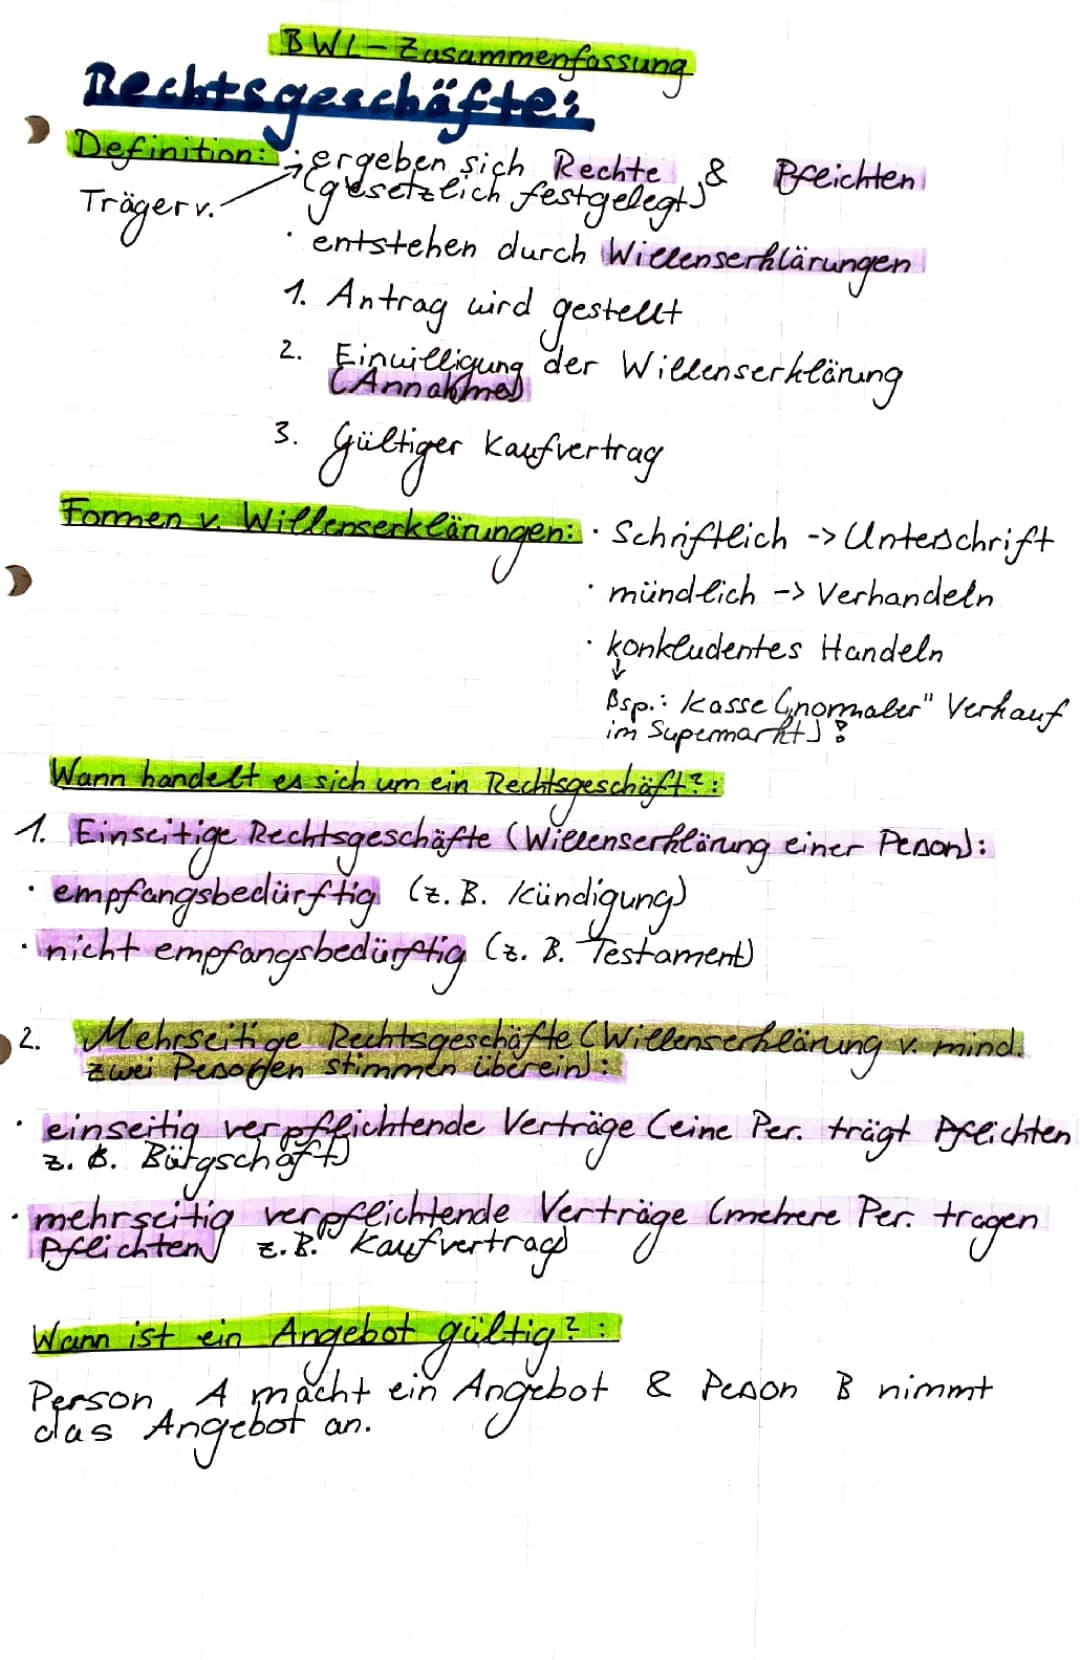 BWL-Zusammenfassung
Rechtsgeschäfte:
Definition: · ergeben sich Rechte & Pflichten
Träger v. (gesetzlich festgelegt)
· entstehen durch Willenserklärungen
1. Antrag wird gestellt
2. Einwilligung der Willenserklärung
(Annahme)
3. Gültiger Kaufvertrag
Formen v. Willenserklärungen: · Schriftlich -> Unterschrift
· mündlich -> Verhandeln
· konkludentes Handeln
↓
Bsp.: Kasse („normaler" Verkauf
im Supermarkt)!
Wann handelt es sich um ein Rechtsgeschäft?:
1. Einseitige Rechtsgeschäfte (Willenserklärung einer Person):
· empfangsbedürftig (z. B. Kündigung)
· nicht empfangsbedürftig (z. B. Testament)
2. Mehrseitige Rechtsgeschäfte (Willenserklärung v. mind.
zwei Personen stimmen überein):
· einseitig verpflichtende Verträge (eine Per. trägt Pflichten
z. B. Bürgschaft)
· mehrseitig verpflichtende Verträge (mehere Per. tragen
Pflichten) z.B. Kaufvertrag)
Wann ist ein Angebot gültig?:
Person A macht ein Angebot & Person B nimmt
das Angebot an.